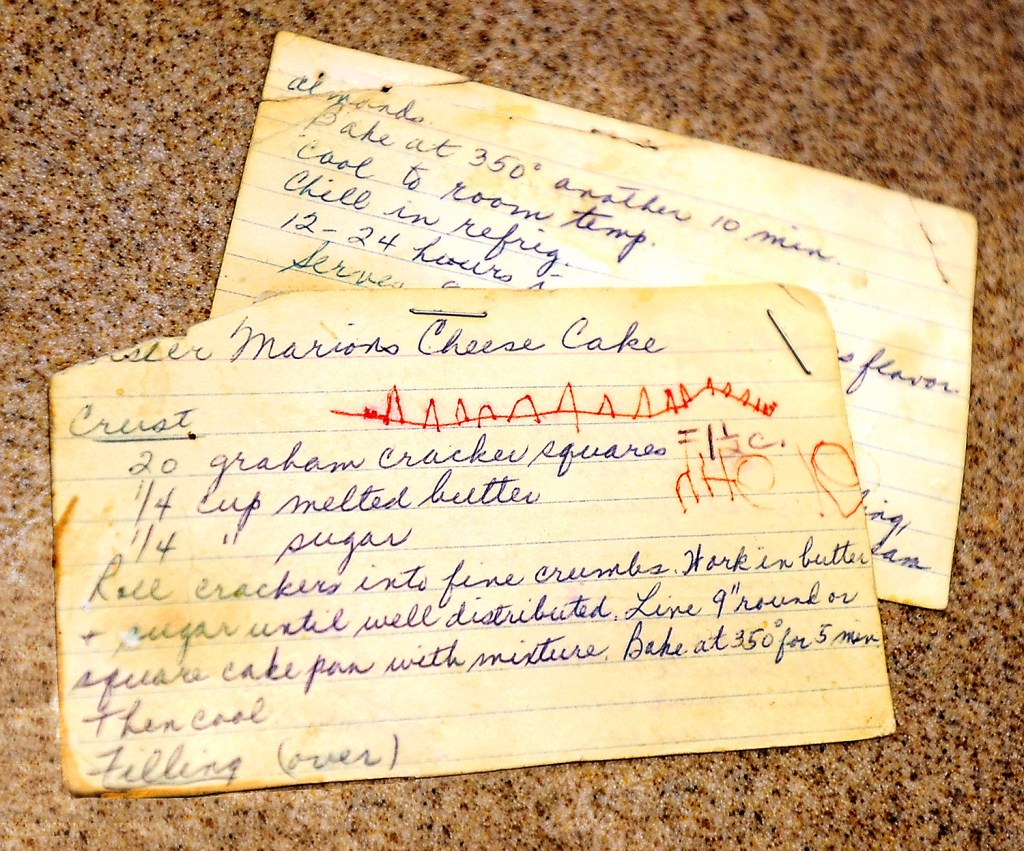 almonds.
Bake at 350° another 10 min.
Cool to room temp.
Chill in refrig.
12-24 hours
Serve
s flavor.
ing,
ster Marions Cheese Cake
Crust
20 graham cracker squares = 1 1/2 c.
1/4 cup melted butter
1/4 " sugar
Roll crackers into fine crumbs. Work in butter
+ sugar until well distributed. Line 9" round or
square cake pan with mixture. Bake at 350° for 5 min
Then cool
Filling (over)